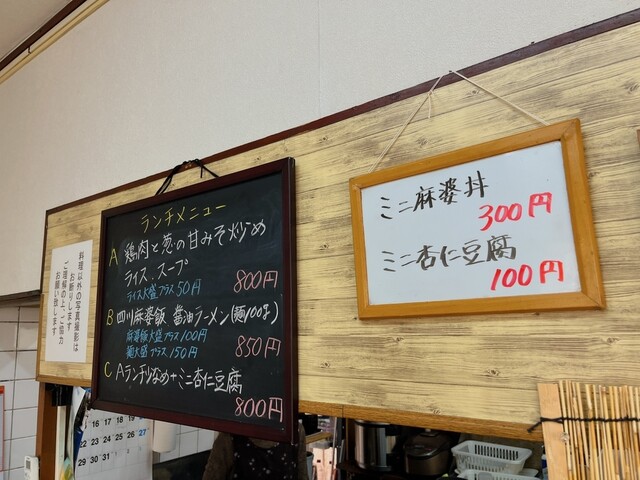 料理以外の写真撮影は
お断りします
ご理解の上、ご協力
お願い致します
ランチメニュー
A 鶏肉と葱の甘みそ炒め
ライス、スープ
ライス大盛プラス50円
800円
B 四川麻婆飯 醤油ラーメン(麺100g)
麻婆飯大盛プラス100円
麺大盛プラス150円
850円
C Aランチ少なめ+ミニ杏仁豆腐
800円
ミニ麻婆丼
300円
ミニ杏仁豆腐
100円
16 17 18 19 20
22 23 24 25 26 27
29 30 31